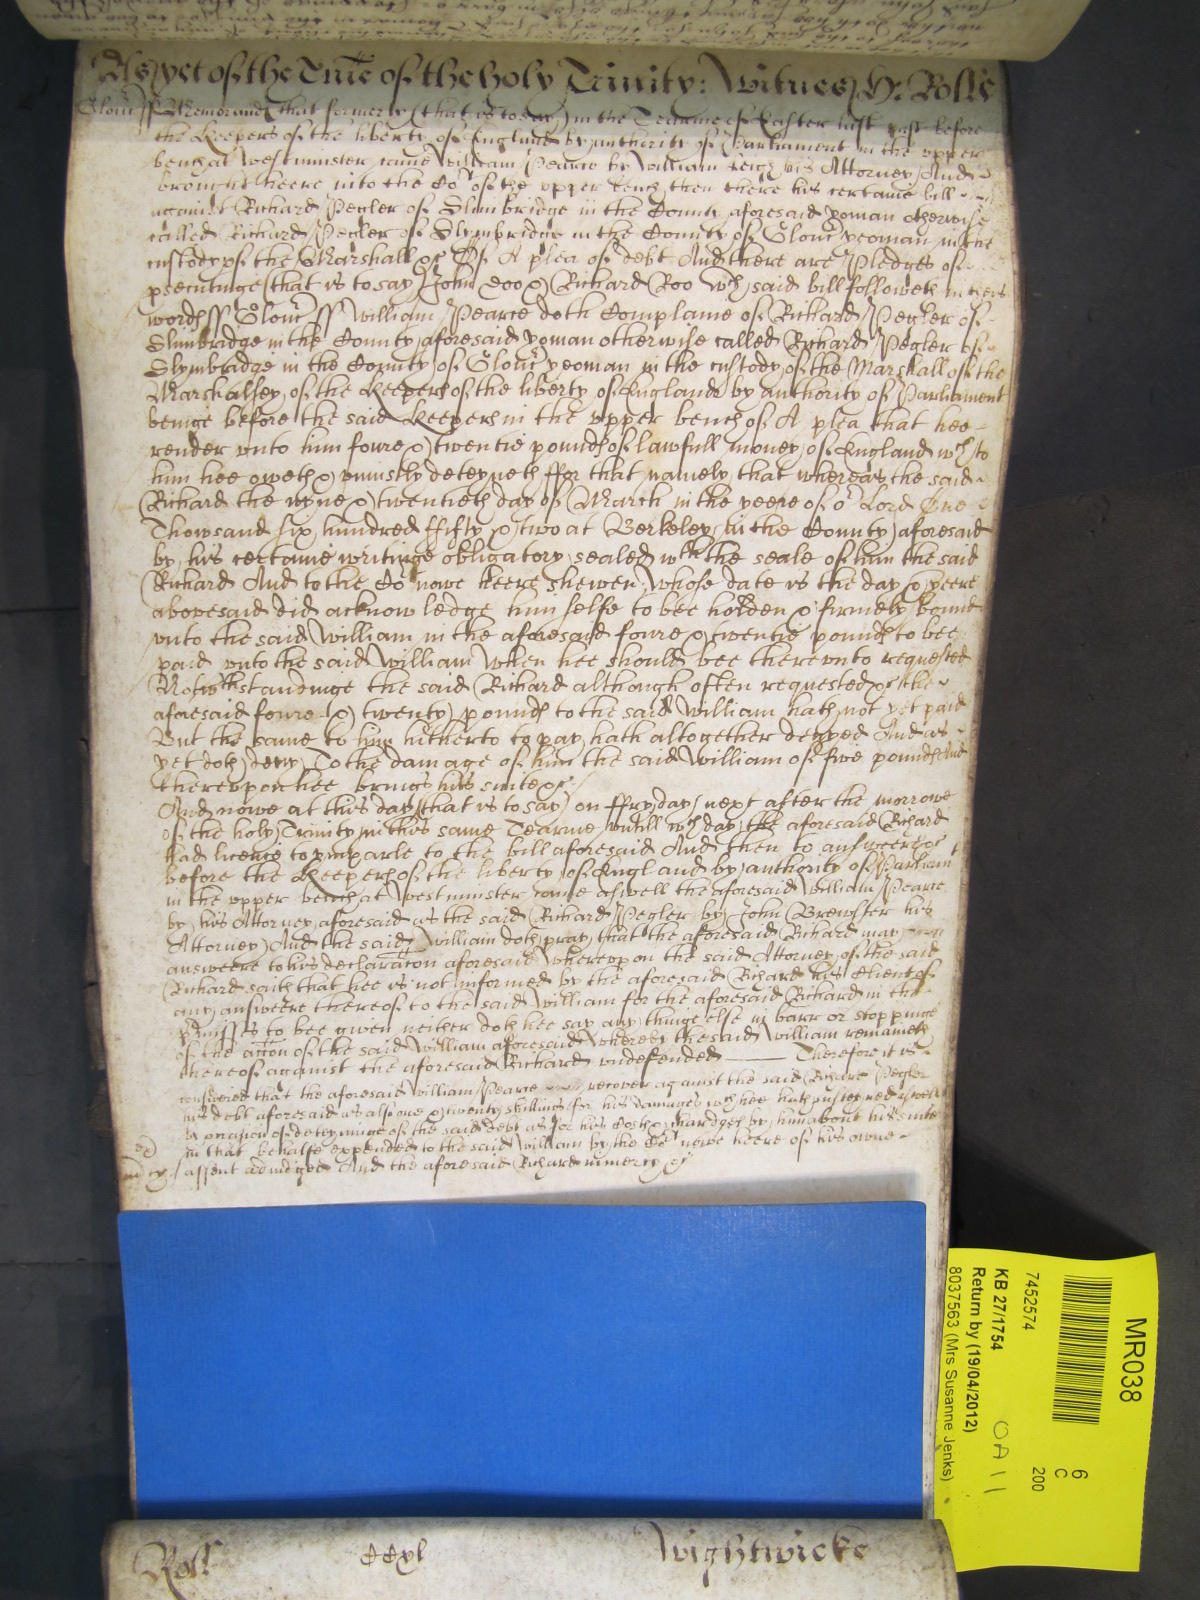 As yet of the Tme of the holy Trinity: Witnes H: Rolle
Glouc ss Memorand that formerly (that is to say) in the Tearme of Easter last past before
the Keepers of the liberty of England by authority of Parliament in the vpper
bench at Westminster came William Pearce by William his Attorney And
brought heere into the Cot of the vpper bench then there his certaine bill
against Richard Pegler of Slimbridge in the County aforesaid yoman otherwise
called Richard Pegler of Slymbridge in the County of Glouc yeoman in the
custody of the Marshall &c Of A plea of debt And there are Pledges of
psecutinge (that is to say) John Doo & Richard Roo Wch said bill followeth in theis
words ss Glouc ss William Pearce doth Complaine of Richard Pegler of
Slimbridge in the County aforesaid yoman otherwise called Richard Pegler of
Slymbridge in the County of Glouc yeoman in the custody of the Marshall of the
Marshalsey of the Keepers of the liberty of England by authority of Parliament
beinge before the said Keepers in the vpper bench of A plea that hee
render vnto him foure & twentie pounds of lawfull money of England wch to
him hee oweth & vniustly deteyneth ffor that namely that whereas the said
Richard the nyne & twentieth day of March in the yeere of or Lord One
Thowsand six hundred ffifty & two at Berkeley in the County aforesaid
by his certaine writinge obligatory sealed wth the seale of him the said
Richard And to the Cot nowe heere shewen whose date is the day & yeere
abovesaid did acknowledge him selfe to bee holden & firmely bound
vnto the said William in the aforesaid foure & twentie pounds to bee
paid vnto the said William When hee should bee therevnto requested
Notwthstandinge the said Richard although often requested &c the
aforesaid foure & twenty pounds to the said William hath not yet paid
But the same to him hitherto to pay hath altogether denyed And as
yet doth deny To the damage of him the said William of five pounds And
therevpon hee brings his suite &c
And nowe at this day (that is to say) on ffryday next after the morrowe
of the holy Trinity in this same Tearme vntill wch day the aforesaid Richard
had licence to imparle to the bill aforesaid And then to answeere &c
before the Keepers of the liberty of England by authority of Parliamt
in the vpper bench at Westminster came aswell the aforesaid William Pearce
by his Attorney aforesaid as the said Richard Pegler by John Brewster his
Attorney And the said William doth pray that the aforesaid Richard may
answeere to his declaration aforesaid Wherevpon the said Attorney of the said
Richard saith that hee is not informed by the aforesaid Richard his Client of
any answeere thereof to the said William for the aforesaid Richard in the
pmisses to bee given neither doth hee say any thinge else in barr or stoppinge
of the action of the said William aforesaid whereby the said William remaineth
thereof against the aforesaid Richard vndefended Therefore it is
considered that the aforesaid William Pearce recover against the said Richard Pegler
his debt aforesaid as also one & twenty shillings for his damages wch hee hath susteyned aswell
by occasion of deteyninge of the said debt as for his Costs & chardges by him about his suite
in that behalfe expended to the said William by the Cot nowe heere of his owne
assent adiudged And the aforesaid Richard in mercy &c
Roll ccxl Wightwicke
MR038
6
C
200
7452574
KB 27/1754
Return by (19/04/2012)
8037563 (Mrs Susanne Jenks)